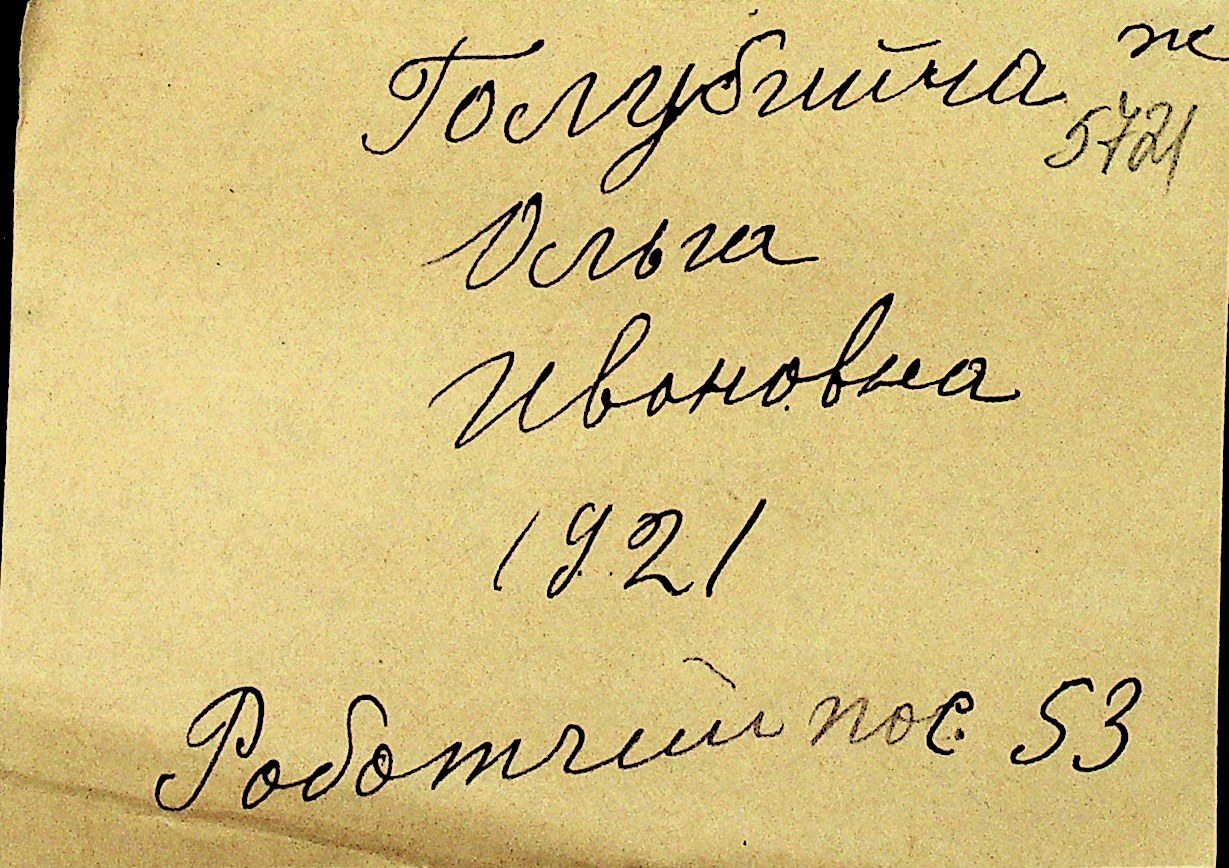 Голубгийча ж
5721
Ольга
Ивоновна
1921
Роботчий пос. 53